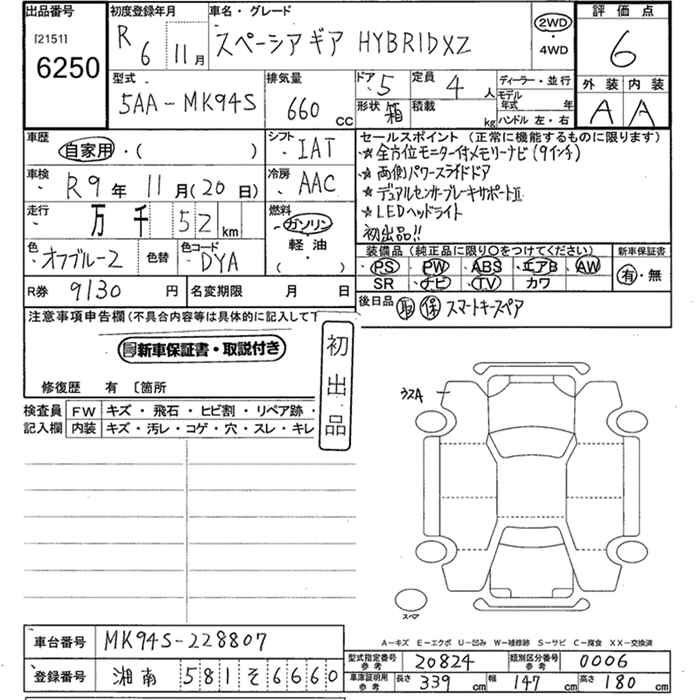 出品番号
[2151]
6250
初度登録年月
R 6 11月
車名・グレード
スペーシアギア HYBRIDXZ
2WD
・
4WD
評価点
6
型式
5AA-MK94S
排気量
660 CC
ドア 5
定員 4 人
形状 箱
積載 kg
ディーラー・並行
モデル年式 年
ハンドル 左・右
外装 内装
A A
車歴
自家用・( )
シフト
IAT
車検
R9年 11月(20日)
冷房
AAC
走行
万 千 52 km
燃料
ガソリン
軽油
( )
色
オフブルー2
色替
色コード
DYA
R券 9130 円
名変期限 月 日
セールスポイント(正常に機能するものに限ります)
☆全方位モニター付メモリーナビ(9インチ)
☆両側パワースライドドア
☆デュアルセンサーブレーキサポートⅡ
☆LEDヘッドライト
初出品!!
装備品(純正品に限り○をつけてください)
PS PW ABS エアB AW
SR ナビ TV カワ
新車保証書
有・無
後日品 取 保 スマートキースペア
注意事項申告欄(不具合内容等は具体的に記入して下
新車保証書・取説付き
修復歴 有 〔箇所
初出品
検査員記入欄
FW キズ・飛石・ヒビ割・リペア跡・
内装 キズ・汚レ・コゲ・穴・スレ・キレ
スペア
A-キズ E-エクボ U-凹み W-補修跡 S-サビ C-腐食 XX-交換済
車台番号 MK94S-228807
登録番号 湘南 581 そ 6660
型式指定番号 参考 20824
類別区分番号 参考 0006
車庫証明用 参考 長さ 339 cm 幅 147 cm 高さ 180 cm